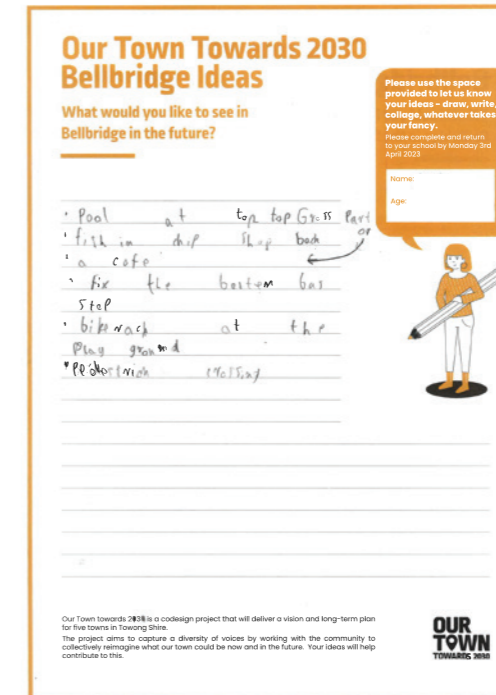 Our Town Towards 2030
Bellbridge Ideas
What would you like to see in
Bellbridge in the future?
Please use the space
provided to let us know
your ideas - draw, write,
collage, whatever takes
your fancy.
Please complete and return
to your school by Monday 3rd
April 2023
Name:
Age:
• Pool at top top Grass Part
• fish in chip shop back or
• a cafe
• fix the bottem bus
stop
• bike rach at the
Play ground
• Pedostrich crossing
Our Town towards 2030 is a codesign project that will deliver a vision and long-term plan
for five towns in Towong Shire.
The project aims to capture a diversity of voices by working with the community to
collectively reimagine what our town could be now and in the future. Your ideas will help
contribute to this.
OUR
TOWN
TOWARDS 2030